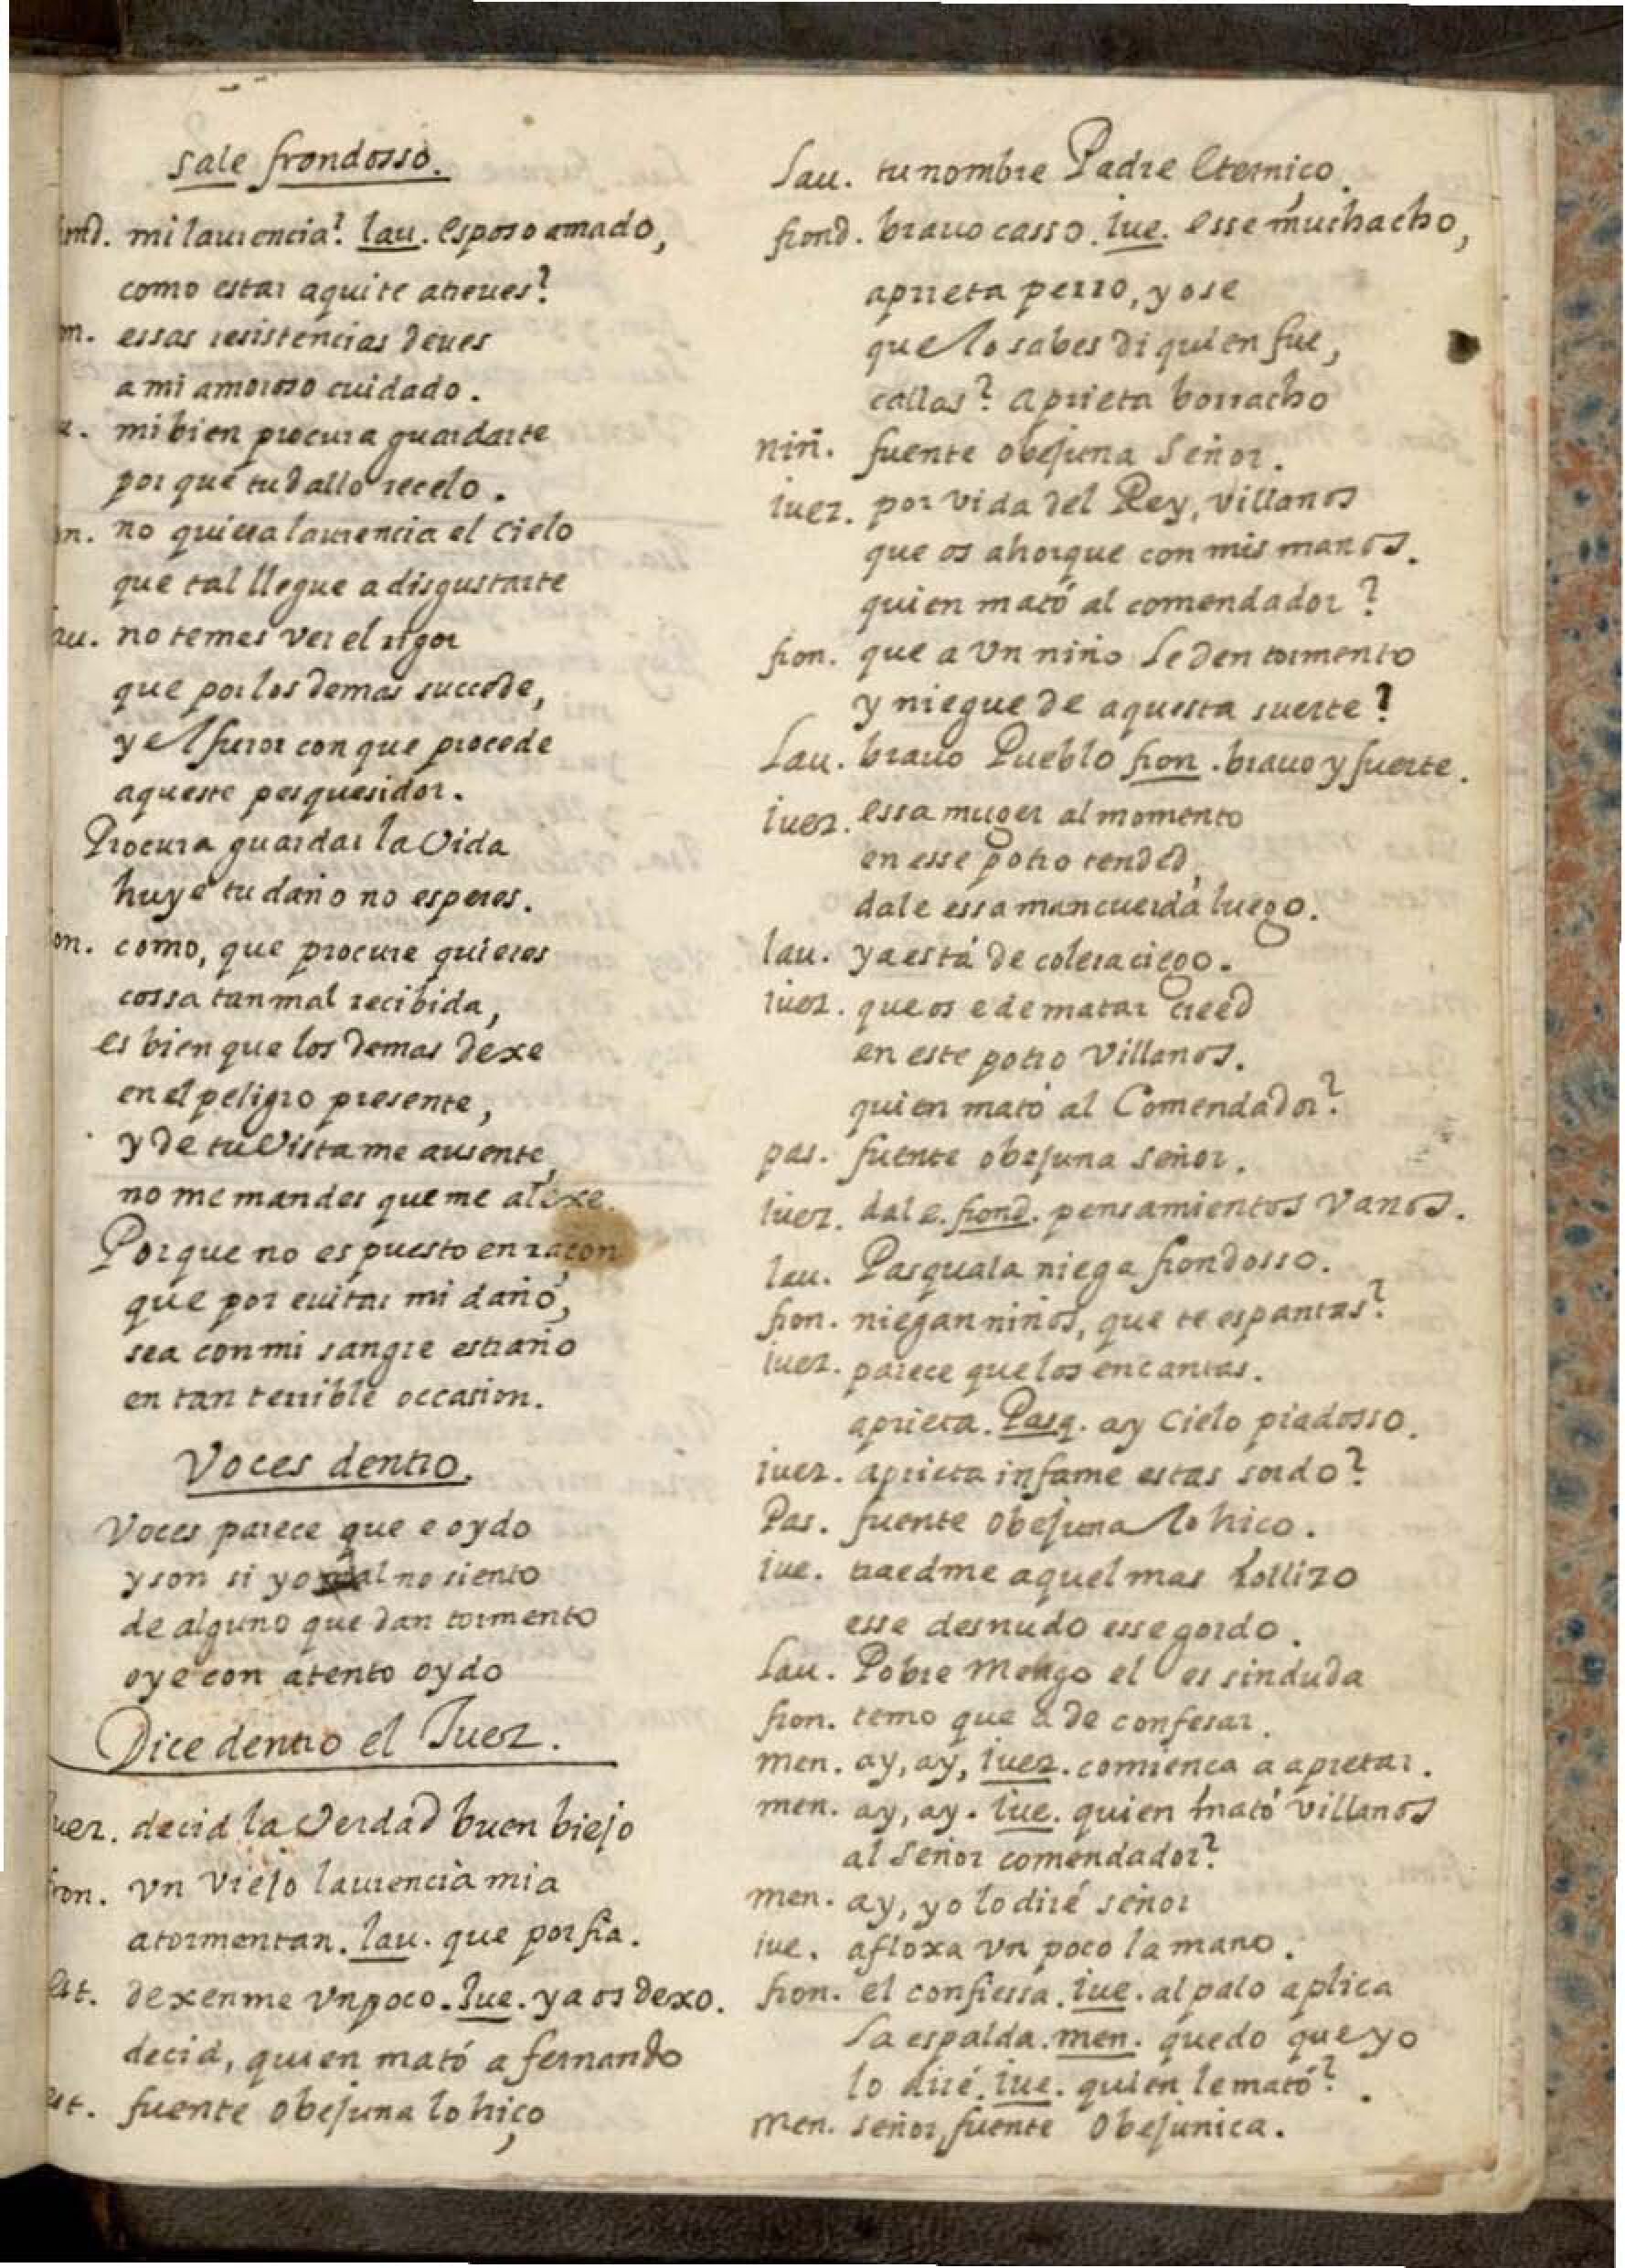 sale frondosso.
ond. mi laurencia? lau. esposo amado,
como estar aqui te atreues?
n. essas resistencias deues
a mi amoroso cuidado.
u. mi bien procura guardarte
por que tu dallo recelo.
on. no quiera laurencia el cielo
que tal llegue a disgustarte
au. no temes ver el rigor
que por los demas succede,
y el furor con que procede
aqueste pesquesidor.
Procura guardar la vida
huye tu daño no esperes.
on. como, que procure quieres
cossa tan mal recibida,
es bien que los demas dexe
en el peligro presente,
y de tu vista me ausente,
no me mandes que me alexe.
Porque no es puesto en raçon
que por euitar mi daño,
sea con mi sangre estraño
en tan terrible occasion.
Voces dentro.
Voces parece que e oydo
y son si yo mal no siento
de alguno que dan tormento
oye con atento oydo
Dice dentro el Juez.
uez. decid la verdad buen biejo
ron. vn viejo laurencia mia
atormentan. lau. que porfia.
est. dexenme vn poco. Jue. ya os dexo.
decid, quien mató a fernando
est. fuente obejuna lo hiço
Lau. tu nombre Padre Eternico.
frond. brauo casso. iue. esse muchacho,
aprieta perro, yo se
que lo sabes di quien fue,
callas? aprieta borracho
niñ. fuente obejuna Señor.
iuez. por vida del Rey, villanos
que os ahorque con mis manos.
quien mató al comendador?
fron. que a vn niño le den tormento
y niegue de aquesta suerte?
Lau. brauo Pueblo fron. brauo y fuerte.
iuez. essa muger al momento
en esse potro tended,
dale essa mancuerda luego.
lau. ya está de colera ciego.
iuez. que os e de matar creed
en este potro villanos.
quien mató al Comendador?
pas. fuente obejuna señor.
iuez. dale. frond. pensamientos vanos.
lau. Pasquala niega frondosso.
fron. niegan niños, que te espantas?
iuez. parece que los encantas.
aprieta. Pasq. ay cielo piadosso.
iuez. aprieta infame estas sordo?
Pas. fuente obejuna lo hiço.
iue. traedme aquel mas rollizo
esse desnudo esse gordo.
Lau. Pobre Mengo el es sin duda
fron. temo que a de confesar.
men. ay, ay, iuez. comiença a apretar.
men. ay, ay. iue. quien mató villanos
al señor comendador?
men. ay, yo lo diré señor
iue. afloxa vn poco la mano.
fron. el confiessa. iue. al palo aplica
la espalda. men. quedo que yo
lo diré. iue. quien le mató?
men. señor, fuente obejunica.